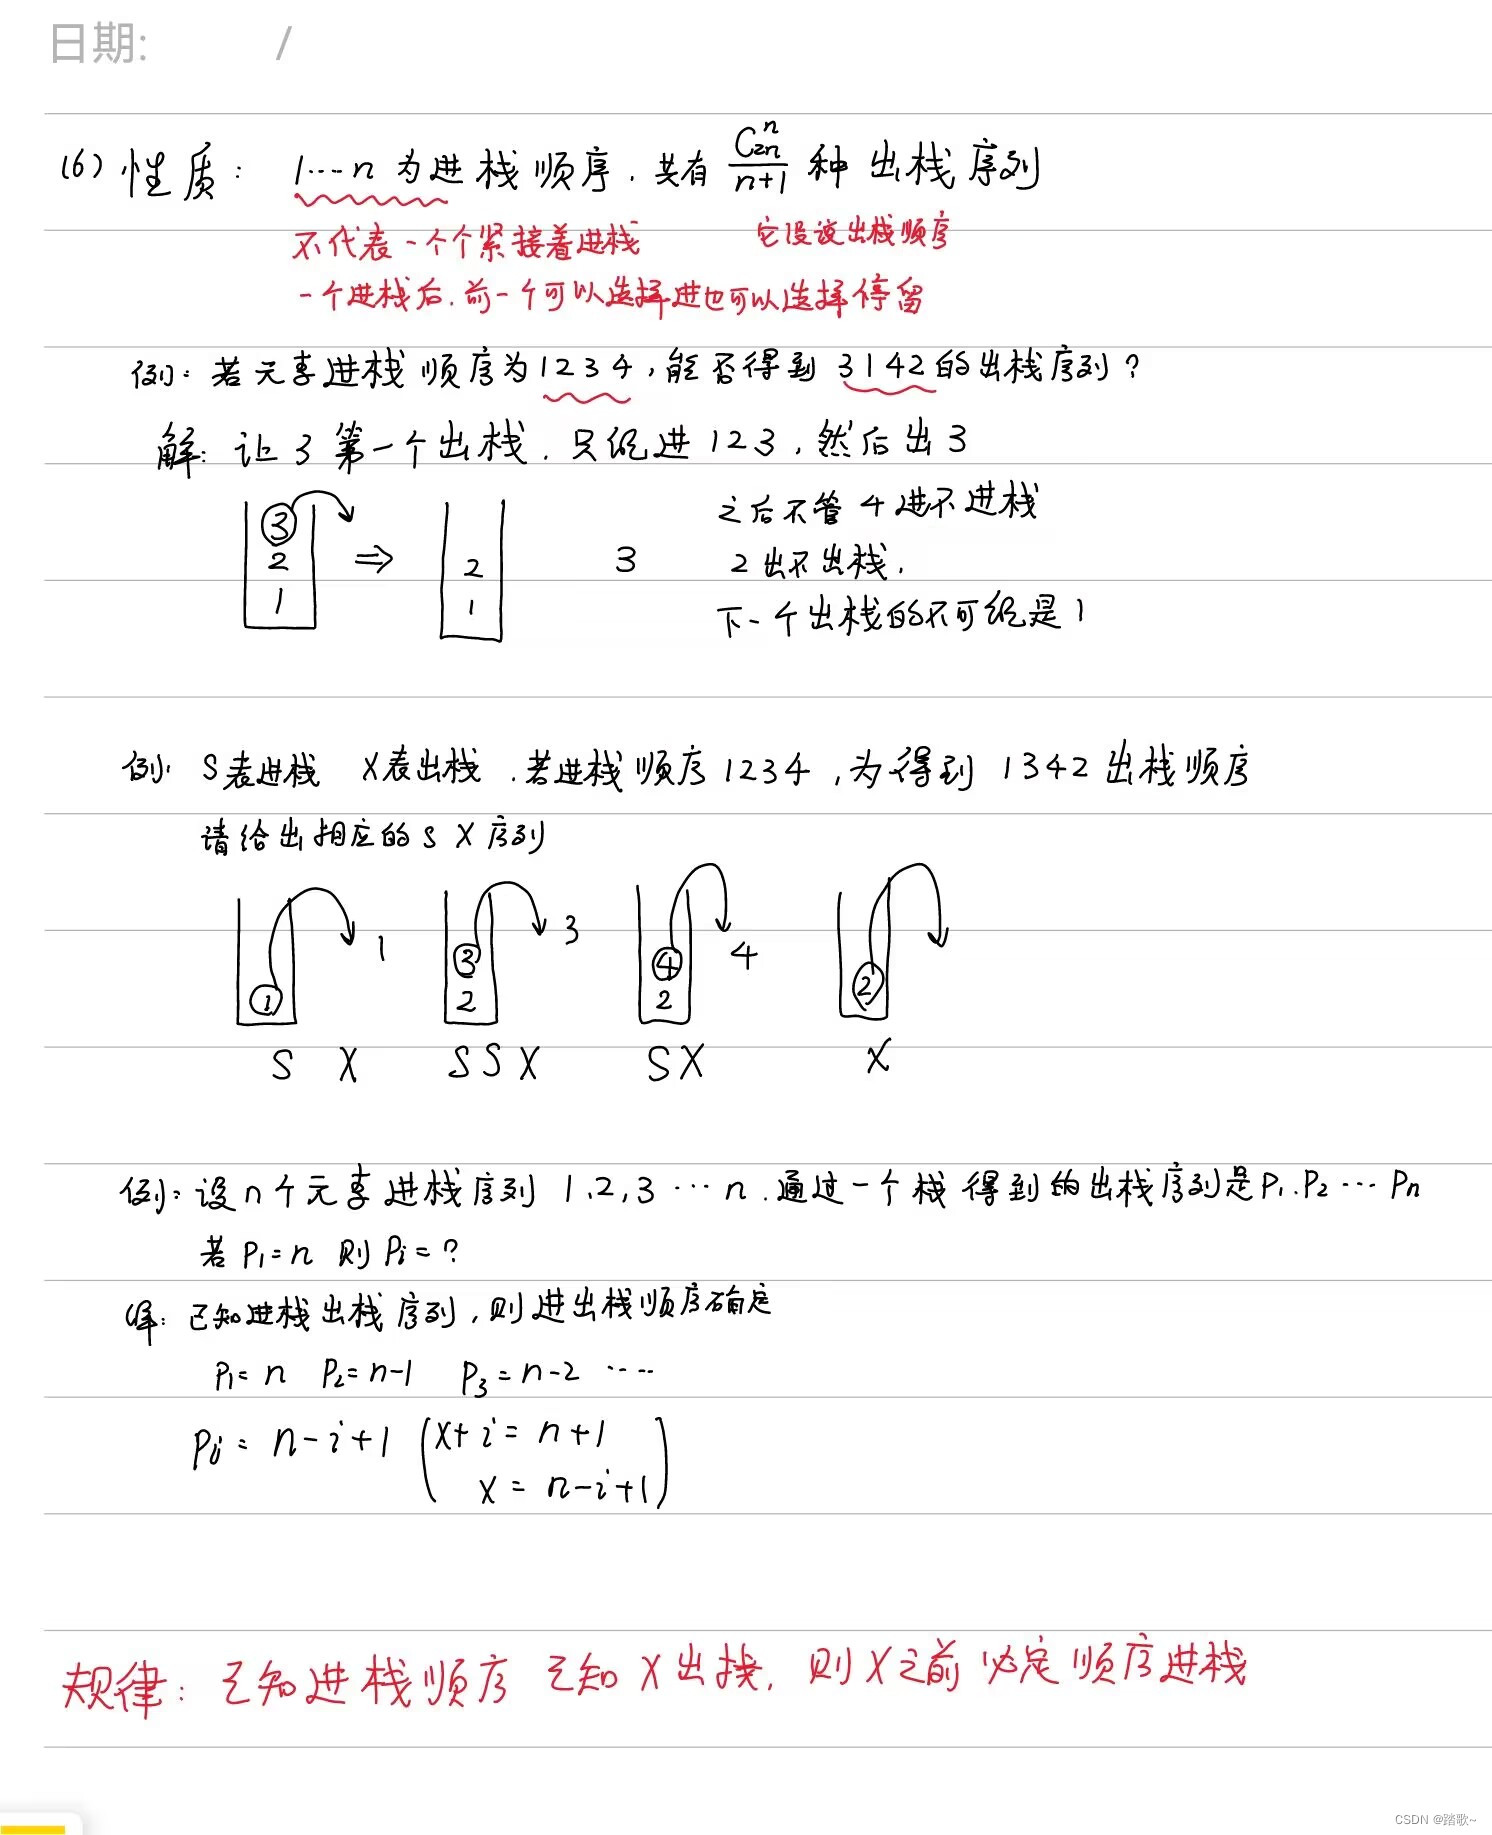 日期: /
(6) 性质: 1…n 为进栈顺序,共有 C_{2n}^{n}/(n+1) 种出栈序列
不代表一个个紧接着进栈 它没说出栈顺序
一个进栈后,前一个可以选择进也可以选择停留
例: 若元素进栈顺序为1234,能否得到3142的出栈序列?
解: 让3第一个出栈,只能进123,然后出3
3 2 1 ⇒ 2 1 3 之后不管4进不进栈
2出不出栈,
下一个出栈的不可能是1
例: S表进栈 X表出栈,若进栈顺序1234,为得到1342出栈顺序
请给出相应的S X序列
① 1 ③ 2 3 ④ 2 4 ②
S X SSX SX X
例: 设n个元素进栈序列1,2,3…n,通过一个栈得到的出栈序列是P₁,P₂…Pn
若P₁=n 则Pi=?
解: 已知进栈出栈序列,则进出栈顺序确定
P₁=n P₂=n-1 P₃=n-2 ……
Pi=n-i+1 (x+i=n+1
x=n-i+1)
规律: 已知进栈顺序 已知X出栈,则X之前必定顺序进栈
CSDN @踏歌~